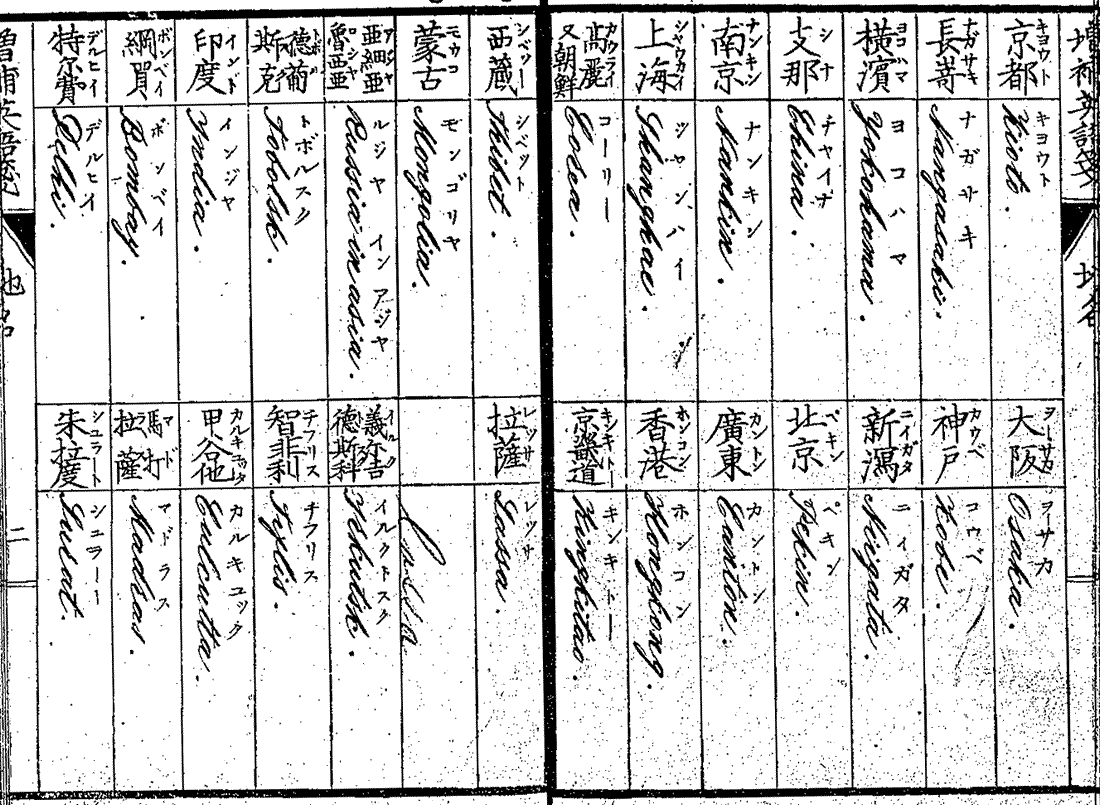 増補英語箋
地名
京都 キヨウト
キヨウト
Kioto.
大阪 ヲーサカ
ヲーサカ
Osaka.
長嵜 ナガサキ
ナガサキ
Nangasaki.
神戸 カウベ
コウベ
Kobe.
横濱 ヨコハマ
ヨコハマ
Yokohama.
新潟 ニイガタ
ニイガタ
Niigata.
支那 シナ
チヤイナ
China.
北京 ペキン
ペキン
Pekin.
南京 ナンキン
ナンキン
Nankin.
廣東 カントン
カントン
Canton.
上海 シヤウカイ
シヤンハイ
Shanghae.
香港 ホンコン
ホンコン
Hongkong.
髙麗 カウライ
又朝鮮
コーリー
Corea.
京畿道
キンキトー
Kingkitao.
西蔵 シベツー
シベツト
Thibet.
拉薩 レツサ
レツサ
Lassa.
蒙古 モウコ
モンゴリヤ
Mongolia.
亜細亜 アジヤ
魯西亜 ロシヤ
ルシヤ イン アジヤ
Russia in asia.
義弥吉 イルク
德斯科
イルクトスク
Irkutsk.
德葡 トボ
斯克
トボルスク
Tobolsk.
智非利 チフリス
チフリス
Tiflis.
印度 インド
インジヤ
India.
甲谷他 カルキユツタ
カルキユツタ
Calcutta.
網買 ボンベイ
ボンベイ
Bombay.
馬打 マド
拉薩
マドラス
Madras.
特尓費 デルヒイ
デルヒイ
Delhi.
朱拉度 シユラート
シユラート
Surat.
増補英語箋
地名
二